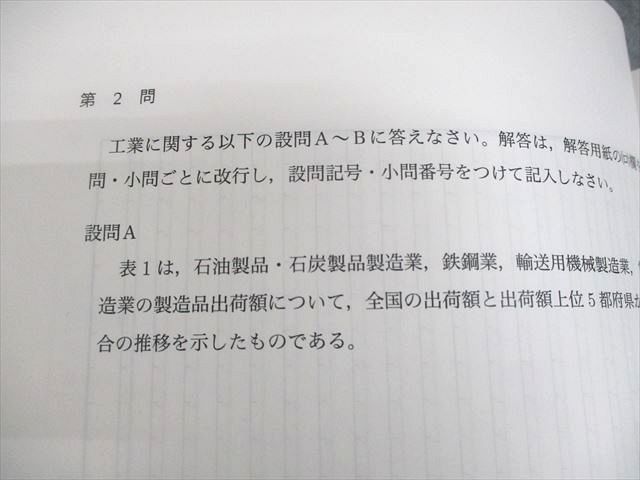 第 2 問
工業に関する以下の設問A〜Bに答えなさい。解答は，解答用紙の
問・小問ごとに改行し，設問記号・小問番号をつけて記入しなさい。
設問A
表1は，石油製品・石炭製品製造業，鉄鋼業，輸送用機械製造業，
造業の製造品出荷額について，全国の出荷額と出荷額上位5都府県
合の推移を示したものである。